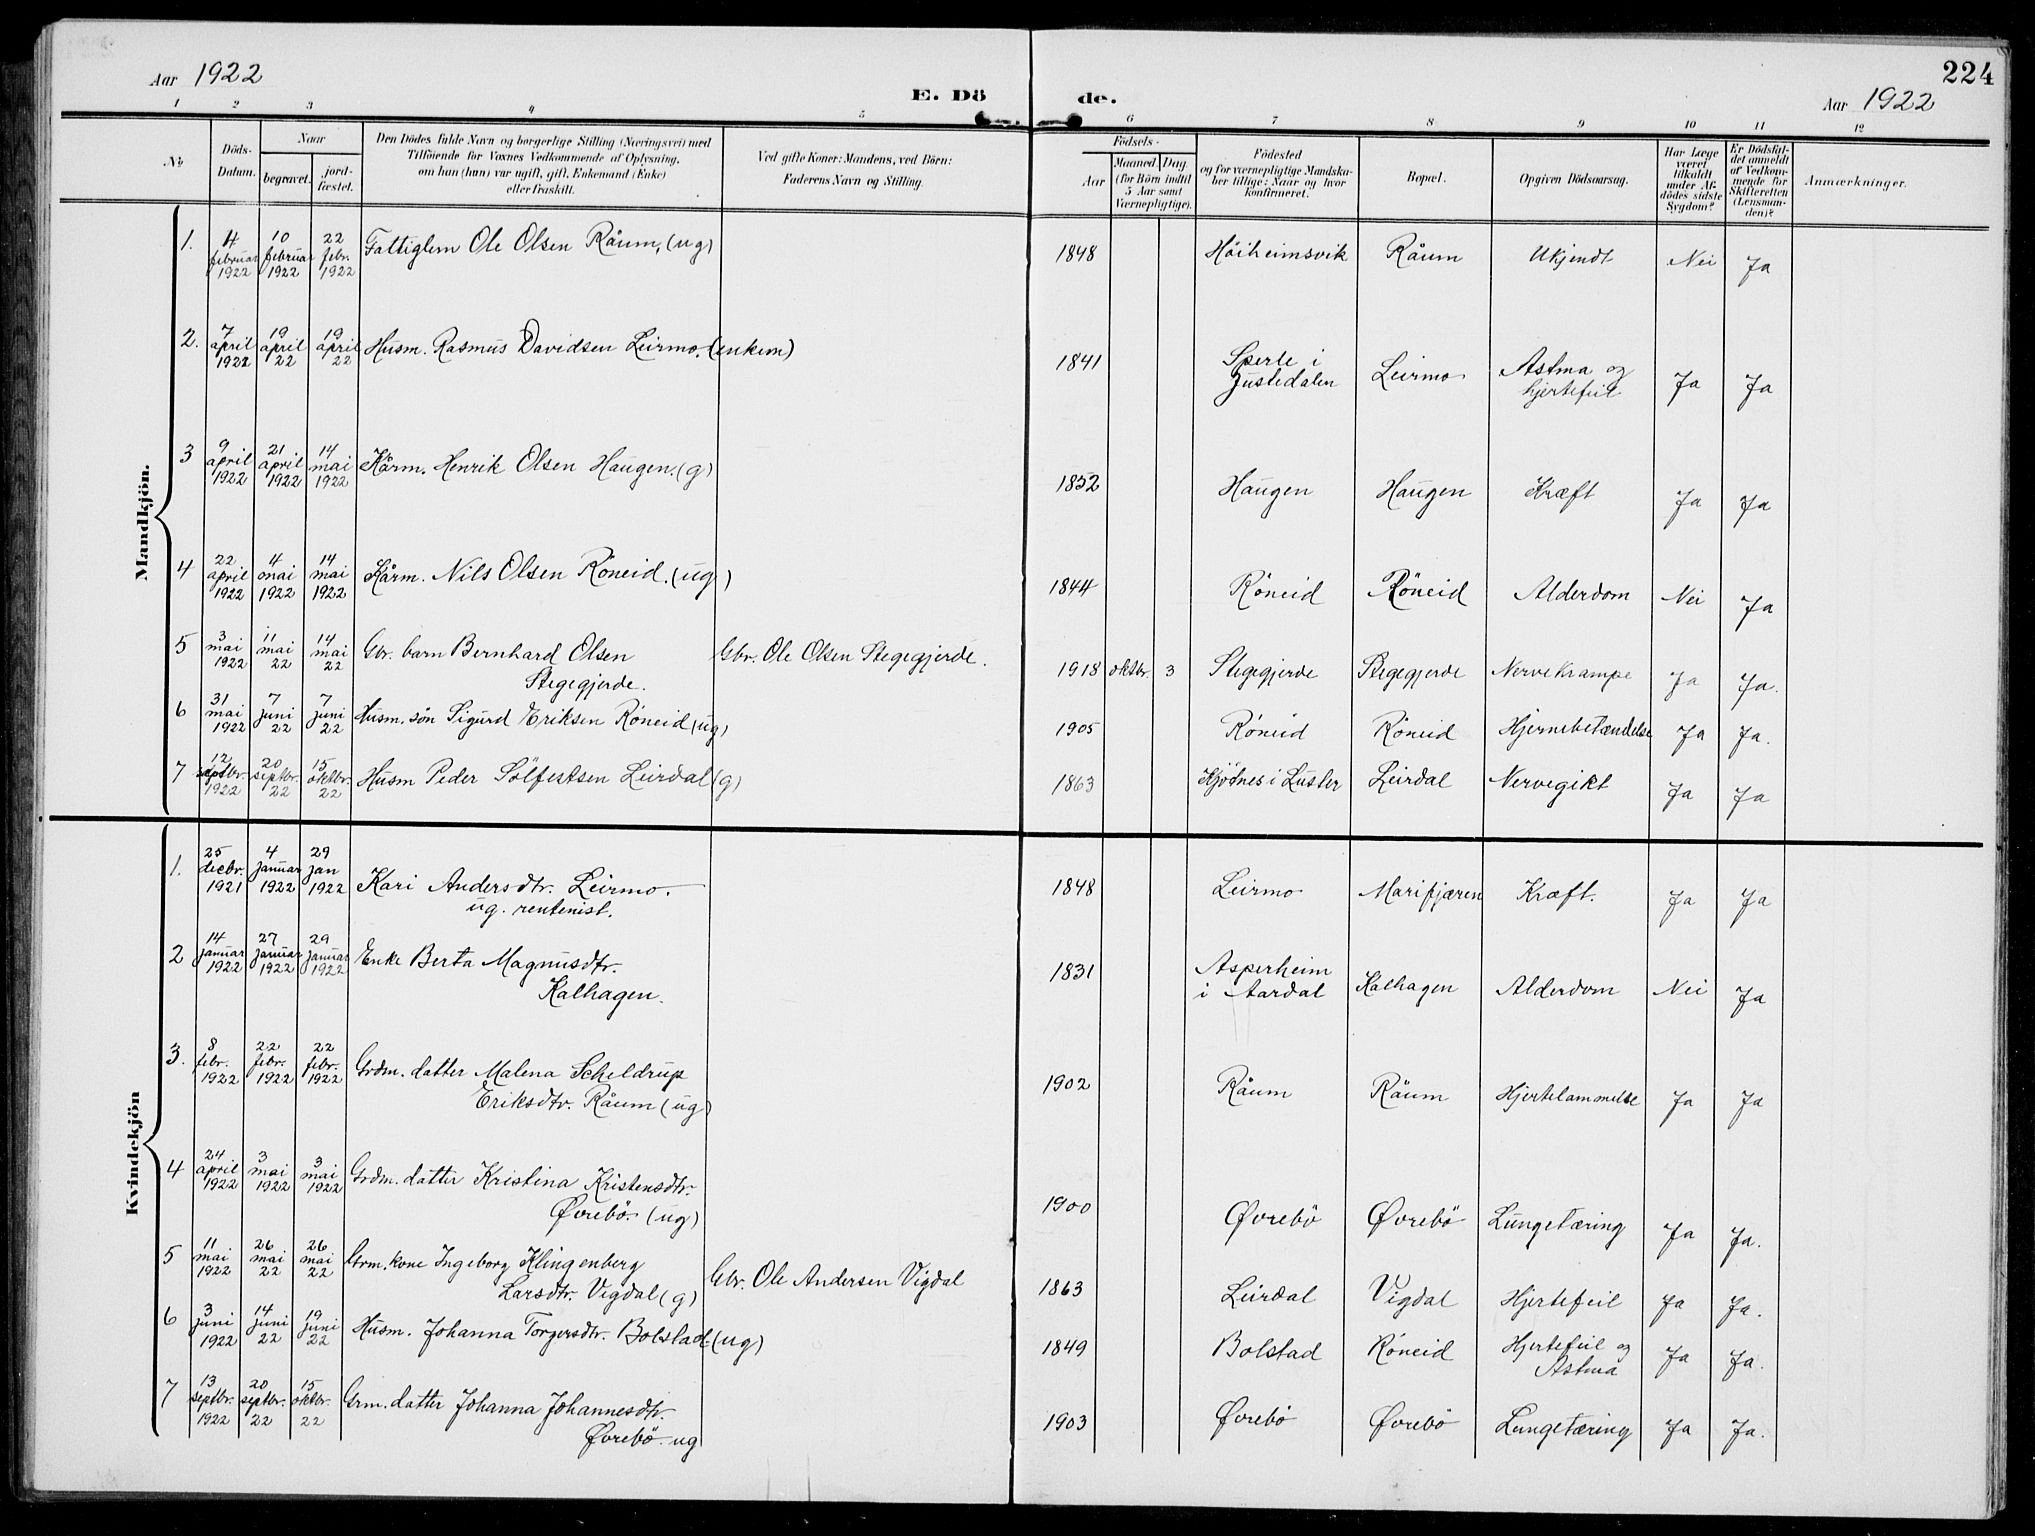 224
Aar 1922
E. Dö de.
Aar 1922
1 2 3 4 5 6 7 8 9 10 11 12
No
Döds-Datum.
Naar
begravet. jord-fæstet.
Den Dödes fulde Navn og borgerlige Stilling (Næringsvei) med
Tilföiende for Voxnes Vedkommende af Oplysning,
om han (hun) var ugift, gift, Enkemand (Enke)
eller fraskilt.
Ved gifte Koner: Mandens, ved Börn:
Faderens Navn og Stilling.
Födsels-
Aar Maaned. Dag.
(for Börn indtil
5 Aar samt
Værnepligtige).
Födested
og for værnepligtige Mandska-
ber tillige: Naar og hvor
konfirmeret.
Bopæl.
Opgiven Dödsaarsag.
Har Læge
været
tilkaldt
under Af-
dödes sidste
Sygdom?
Er Dödsfal-
det anmeldt
af Vedkom-
mende for
Skifteretten
(Lensman-
den)?
Anmærkninger.
Mandkjön.
1. 4 februar 1922 10 februar 1922 22 febr. 1922 Fattiglem Ole Olsen Råum, (ug) 1848 Höiheimsvik Råum Ukjendt Nei Ja
2. 7 april 1922 19 april 22 19 april 22 Husm. Rasmus Davidsen Leirmo. (enkem) 1841 Sperle i Justedalen Leirmo Astma og hjertefeil Ja Ja
3 9 april 1922 21 april 1922 14 mai 1922 Kårm. Henrik Olsen Haugen. (g) 1852 Haugen Haugen Kræft Ja Ja
4 22 april 1922 4 mai 1922 14 mai 1922 Kårm. Nils Olsen Röneid. (ug) 1844 Röneid Röneid Alderdom Nei Ja
5 3 mai 1922 11 mai 22 14 mai 22 Gbr. barn Bernhard Olsen
Stegegjerde. Gbr. Ole Olsen Stegegjerde. 1918 oktbr. 3 Stegegjerde Stegegjerde Nervekrampe Ja Ja.
6 31 mai 1922 7 juni 22 7 juni 22 Husm. sön Sigurd Eriksen Röneid (ug) 1905 Röneid Röneid Hjernebetændelse Ja Ja.
7 12 septbr. 1922 20 septbr. 22 15 oktbr. 22 Husm Peder Sölfestsen Leirdal (g) 1863 Kjösnes i Luster Leirdal Nervegikt Ja Ja
Kvindekjön
1. 25 decbr. 1921 4 januar 1922 29 jan 1922 Kari Andersdtr. Leirmo.
ug. rentenist. 1848 Leirmo Marifjæren Kræft. Ja Ja
2 14 januar 1922 27 januar 1922 29 januar 1922 Enke Berta Magnusdtr.
Kalhagen. 1831 Asperheim i Aardal Kalhagen Alderdom Nei Ja
3. 8 febr. 1922 22 febr. 1922 22 febr. 1922 Grdm. datter Malena Scheldrup
Eriksdtr. Råum (ug) 1902 Råum Råum Hjertelammelse Ja Ja
4 24 april 1922 3 mai 1922 3 mai 1922 Grdm. datter Kristina Kristensdtr.
Øvrebö. (ug) 1900 Øvrebö Øvrebö Lungetæring Ja Ja.
5 11 mai 1922 26 mai 22 26 mai 22 Grm. kone Ingeborg Klingenberg
Larsdtr. Vigdal (g) Gbr. Ole Andersen Vigdal 1863 Leirdal Vigdal Hjertefeil Ja Ja.
6 3 juni 1922 14 juni 22 19 juni 22 Husm. Johanna Torgersdtr. Bolstad (ug) 1849 Bolstad Röneid Hjertefeil og Astma Ja Ja.
7 13 septbr. 1922 20 septbr. 22 15 oktbr. 22 Grm. datter Johanna Johannesdtr.
Øvrebö. ug 1903 Øvrebö Øvrebö Lungetæring Ja Ja.